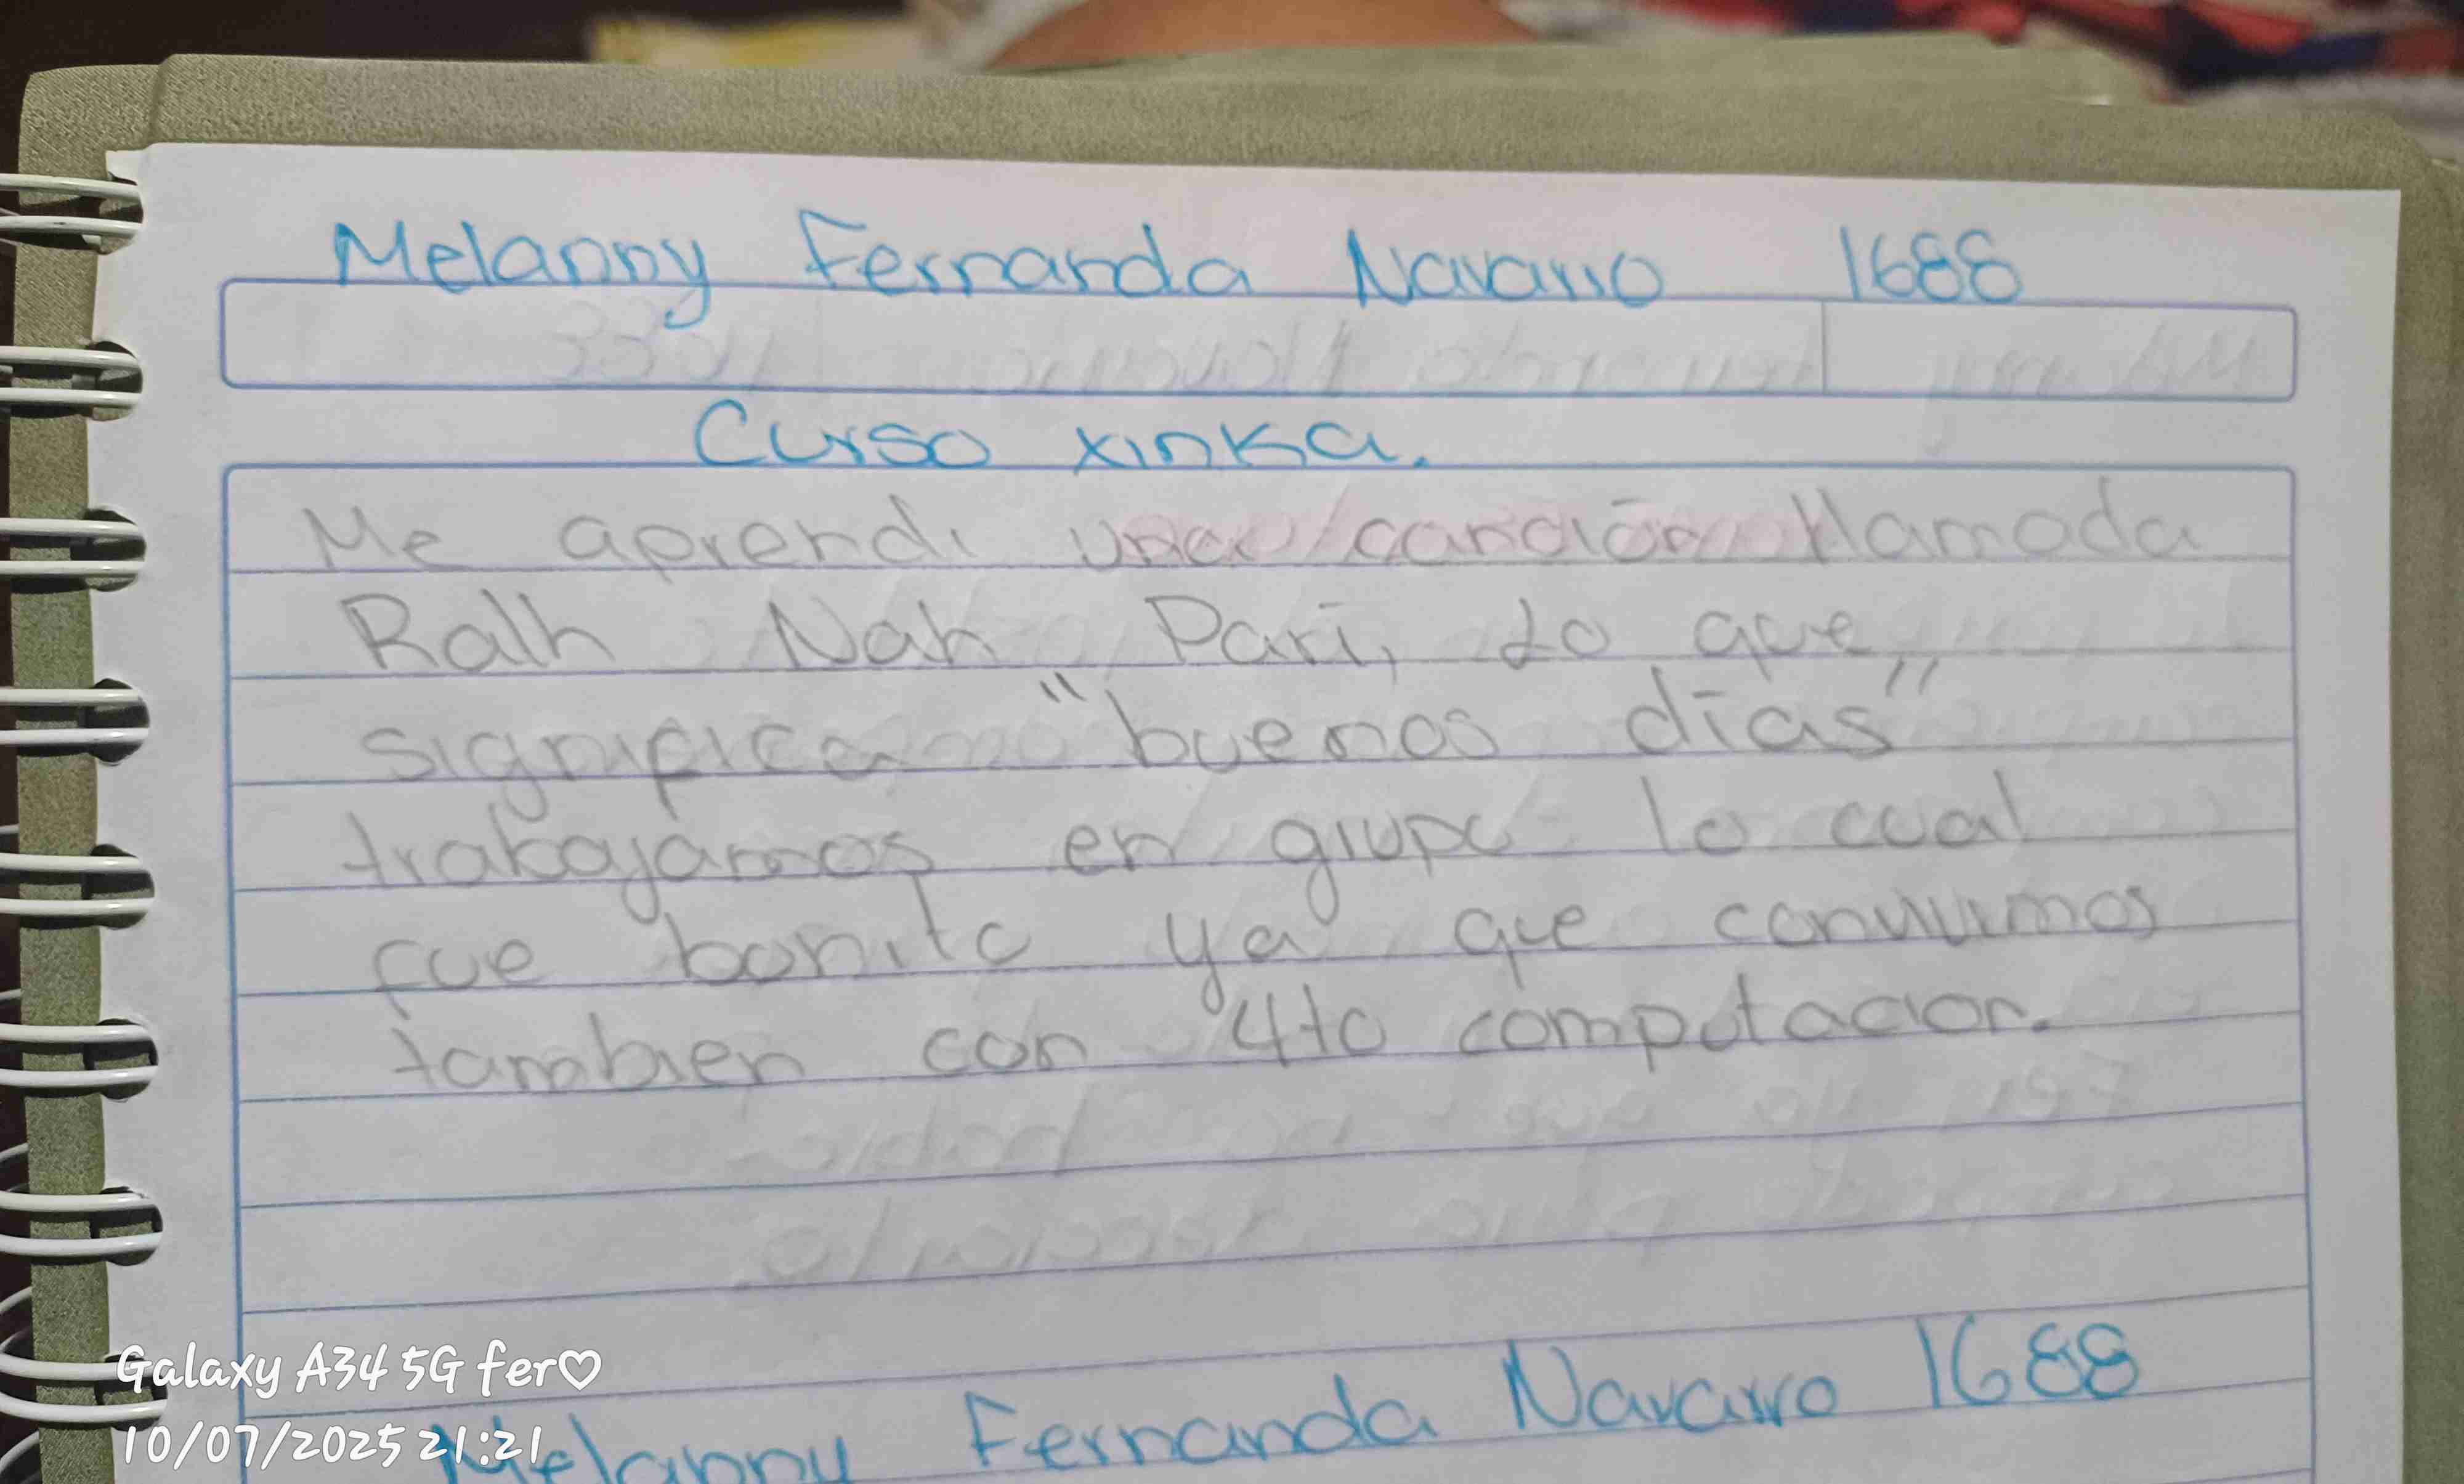 Melanny Fernanda Navarro 1688
Curso xinka.
Me aprendi una canción llamada
Ralh Nah Pari, Lo que
significa "buenos días"
trabajamos en grupo lo cual
fue bonito ya que convivimos
tambien con 4to computacion.
Melanny Fernanda Navarro 1688
Galaxy A34 5G fer♡
10/07/2025 21:21